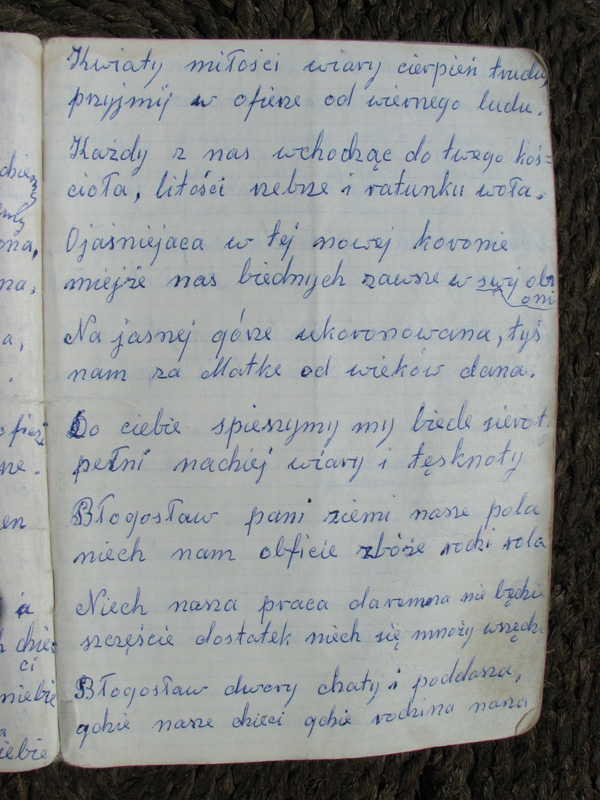 Kwiaty miłości wiary cierpień trudu
przyjmij w ofierze od wiernego ludu.
Każdy z nas wchodząc do twego koś=
cioła, litości żebrze i ratunku woła.
Ojaśniejaca w tej nowej koronie
miejże nas biednych zawsze w swej obr
oni
Na jasnej górze ukoronowana, tyś
nam za Matke od wieków dana.
Do ciebie spieszymy my biede sierot
pełni nadziej wiary i tęsknoty
Błogosław pani ziemi nasze pola
niech nam obficie zbóże rodzi rola
Niech nasza praca daremna nie będzie
szczęście dostatek niech się mnoży wszędz
Błogosław dwory chaty i poddasza,
gdzie nasze dzieci gdzie rodzina nasza